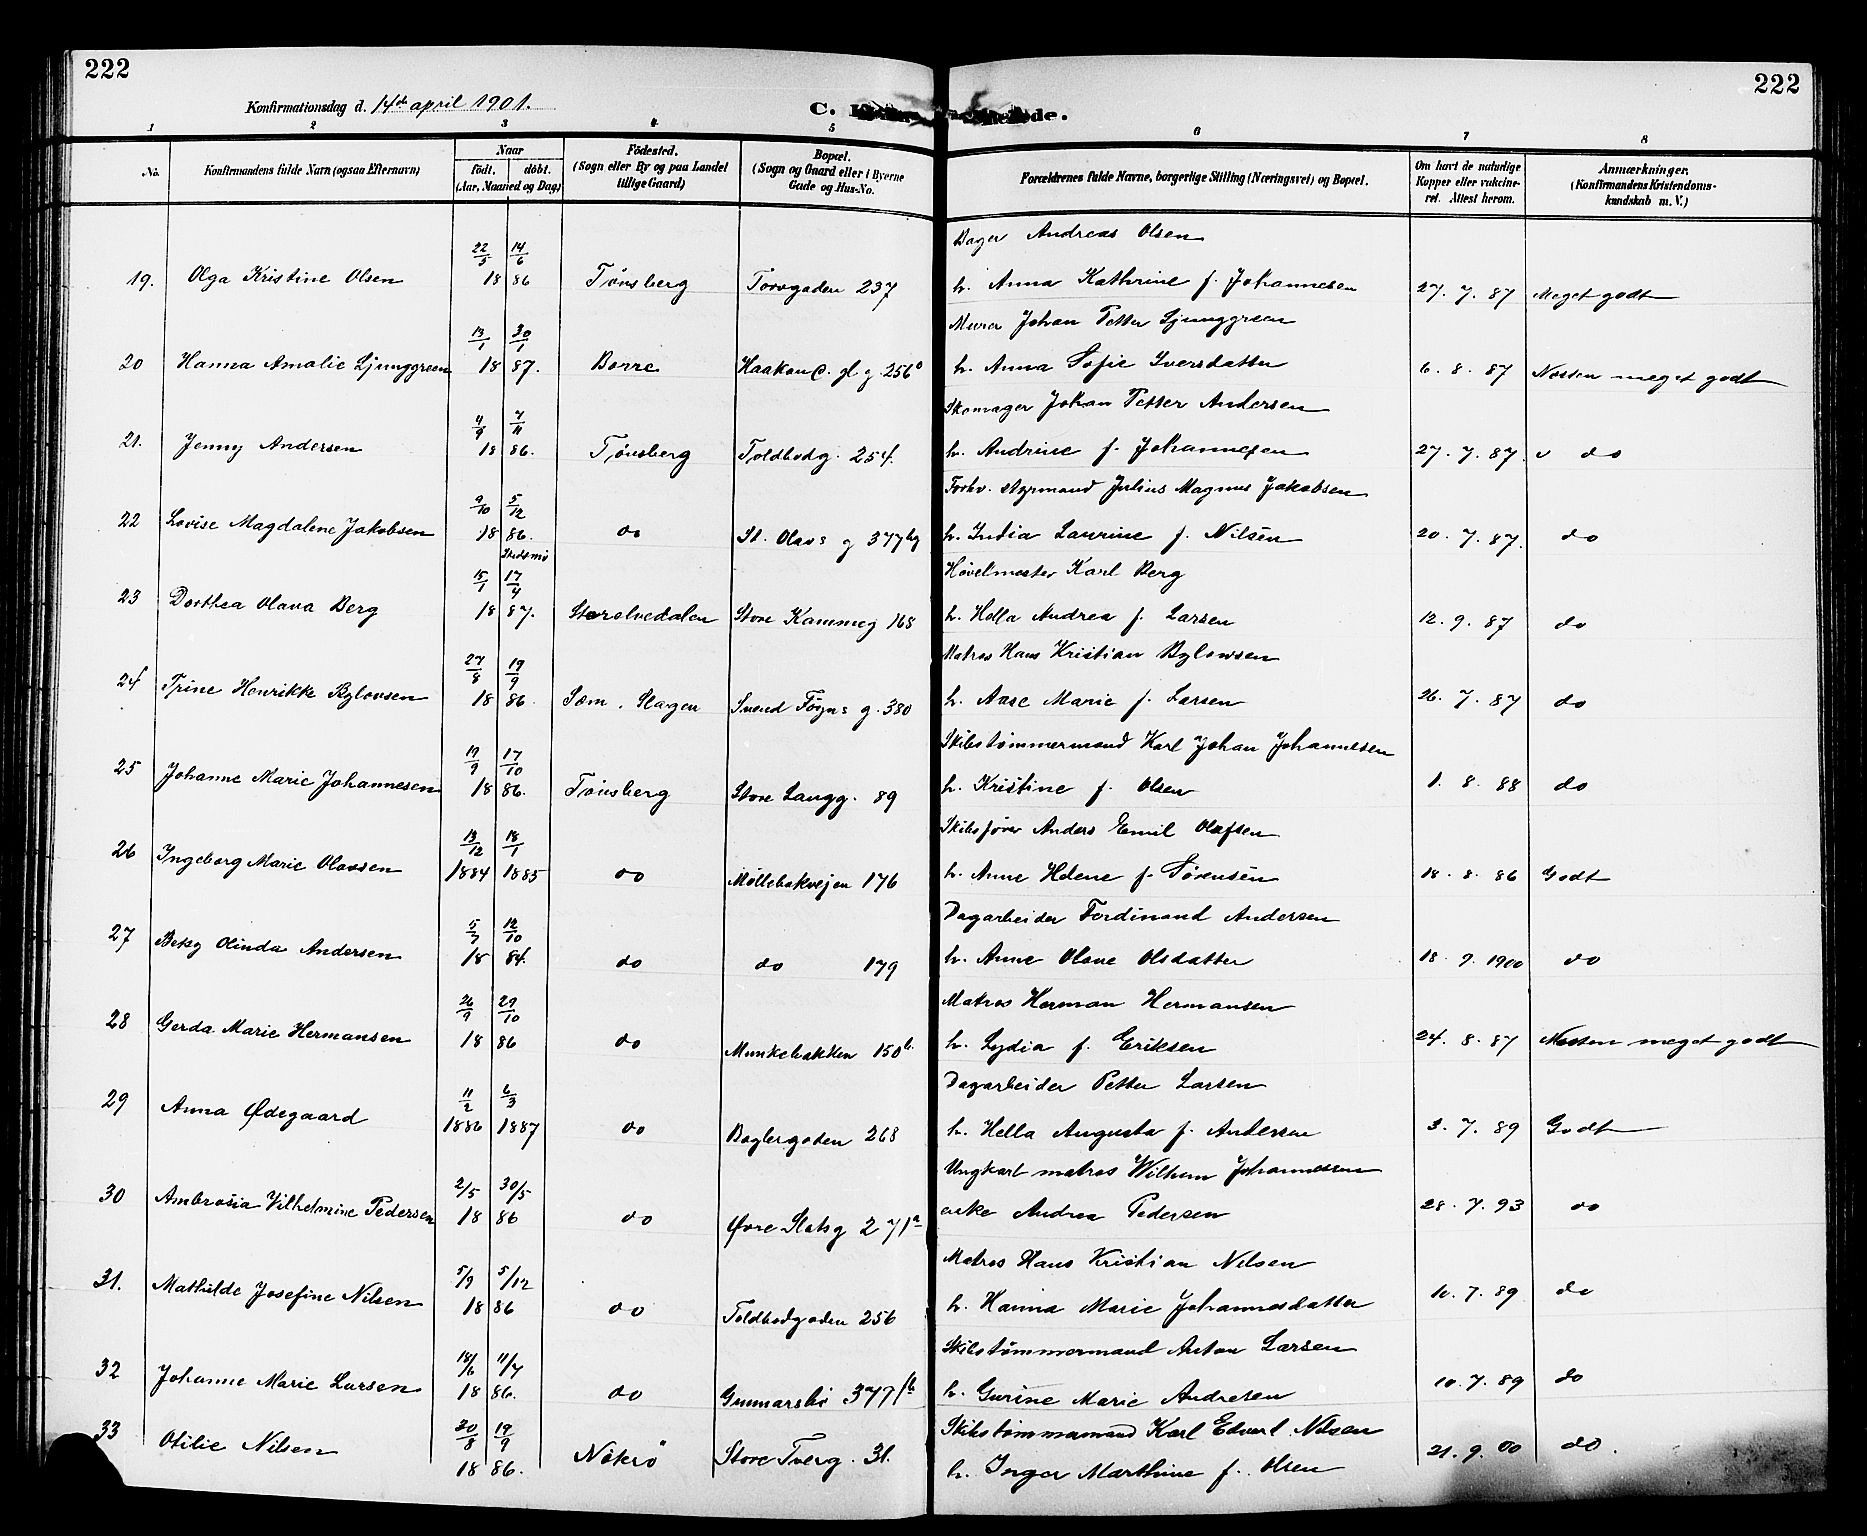 222
222
Konfirmationsdag d. 14de april 1901.
C.
de.
1 2 3 4 5 6 7 8
No.
Konfirmandens fulde Navn (ogsaa Efternavn)
Naar
født. døbt.
(Aar, Maaned og Dag)
Fødested.
(Sogn eller By og paa Landet
tillige Gaard)
Bopæl.
(Sogn og Gaard eller i Byerne
Gade og Hus-No.
Forældrenes fulde Navne, borgerlige Stilling (Næringsvei) og Bopæl.
Om havt de naturlige
Kopper eller vakcine-
ret. Attest herom.
Anmærkninger.
(Konfirmandens Kristendoms-
kundskab m. V.)
22/5 14/6 Bager Andreas Olsen
19. Olga Kristine Olsen 18 86 Tønsberg Torvgaden 237 h. Anna Kathrine f. Johannesen 27. 7. 87 Meget godt
13/1 30/1 Murer Johan Petter Ljunggreen
20 Hanna Amalie Ljunggreen 18 87. Borre Haakon gl g. 256 h. Anna Sofie Iversdatter 6. 8. 87 Næsten meget godt
4/9 7/11 Skomager Johan Petter Andersen
21. Jenny Andersen 18 86. Tønsberg Toldbodg. 254. h. Andrine f. Johannesen 27. 7. 87. do
9/10 5/12 Forhv. styrmand Julius Magnus Jakobsen
22 Lovise Magdalene Jakobsen 18 86. do St. Olavs g 377 h. India Laurine f. Nilsen 20. 7. 87. do
Skedsmo
15/1 17/4 Høvelmester Karl Berg
23 Dorthea Olava Berg 18 87. Storelvedalen Store Kammeg 168 h. Hella Andrea f. Larsen 12. 9. 87 do
27/8 19/9 Matros Hans Kristian Bylowsen
24 Trine Henrikke Bylovsen 18 86. Sæm, Slagen Svend Føyns g. 380 h. Aase Marie f. Larsen 26. 7. 87 do
19/9 17/10 Skibstømmermand Karl Johan Johannesen
25 Johanne Marie Johannesen 18 86. Tønsberg Store Langg. 89 h. Kristine f. Olsen 1. 8. 88 do
13/12 18/1 Skibsfører Anders Emil Olafsen
26 Ingeborg Marie Olavsen 1884 1885 do Møllebakvejen 176 h. Anne Helene f. Sørensen 18. 8. 86 Godt
5/7 12/10 Dagarbeider Ferdinand Andersen
27 Betsy Olinda Andersen 18 84. do do 179 h. Anne Olave Olsdatter 18. 9. 1900 do
26/9 29/10 Matros Herman Hermansen
28 Gerda Marie Hermansen 18 86 do Munkebakken 150 b. h. Lydia f. Eriksen 24. 8. 87 Næsten meget godt
11/2 6/3 Dagarbeider Petter Larsen
29 Anna Ødegaard 1886 1887 do Baglergaden 268 h. Hella Augusta f. Andersen 3. 7. 89 Godt
2/5 30/5 Ungkarl matros Wilhem Johannessen
30 Ambrosia Vilhelmine Pedersen 18 86 do Øvre Slotsg 271 a enke Andrea Pedersen 28. 7. 93 do
5/9 5/12 Matros Hans Kristian Nilsen
31. Mathilde Josefine Nilsen 18 86 do Toldbodgaden 256 h. Hanna Marie Johannesdatter 10. 7. 89 do
18/6 11/7 Skibstømmermand Anton Larsen
32 Johanne Marie Larsen 18 86. do Gunnarsbø 377 h. Gurine Marie Andresen 10. 7. 89 do
30/8 19/9 Skibstømmermand Karl Edvart Nilsen
33 Otilie Nilsen 18 86. Nøtrø Store Tverg. 31. h. Inger Marthine f. Olsen 21. 9. 00 do.